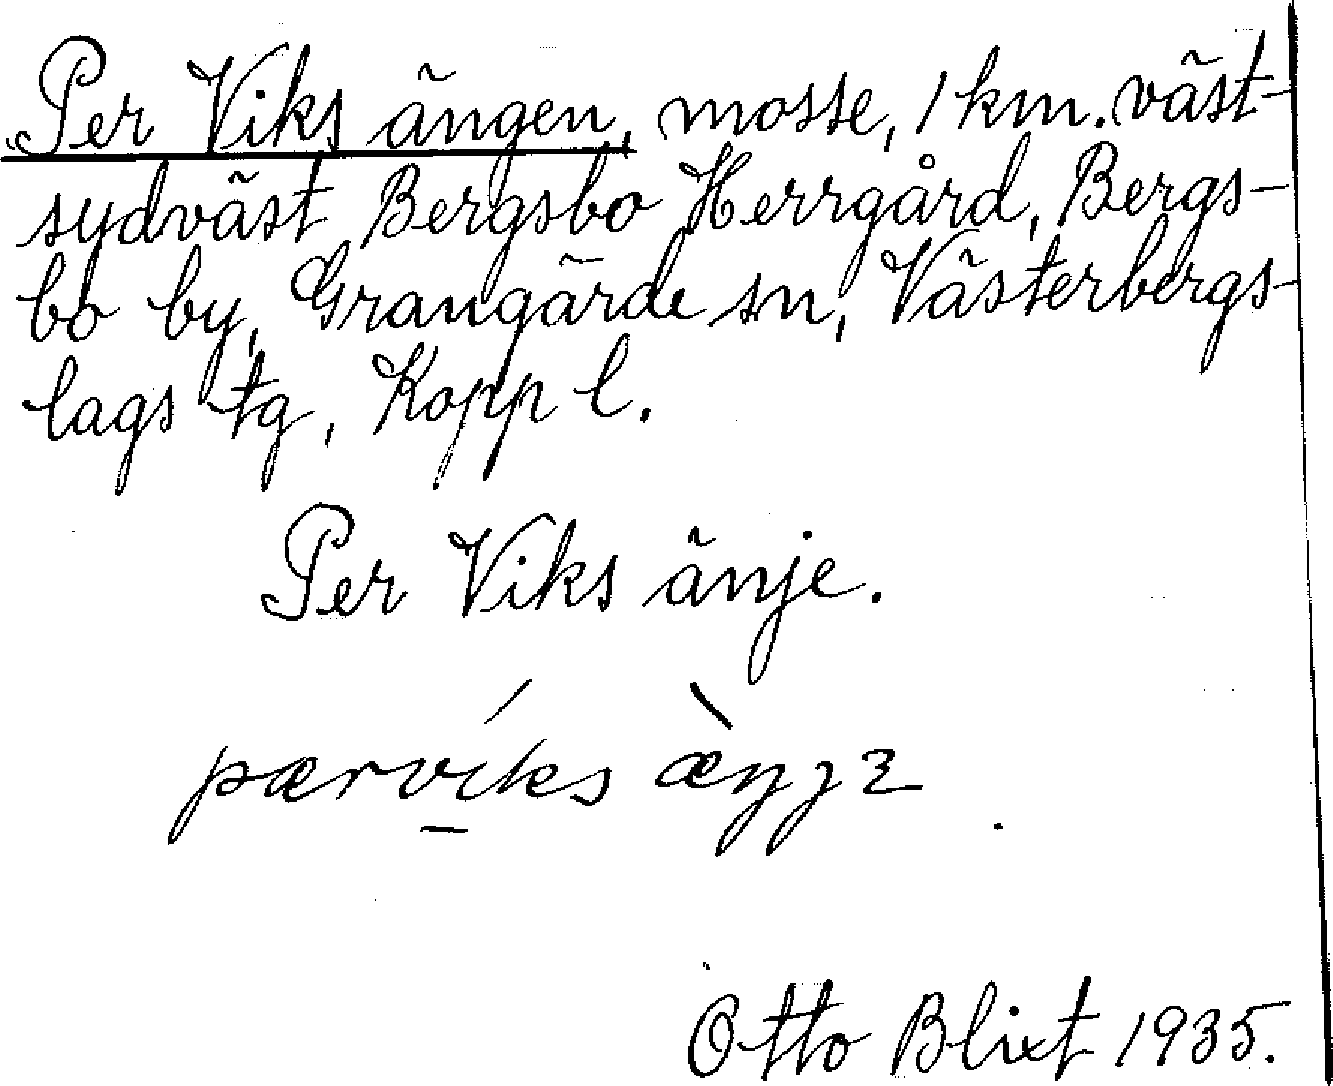 Per Viks ängen, mosse, 1 km. väst-
sydväst Bergsbo Herrgård, Bergs-
bo by, Grangärde sn, Västerbergs-
lags tg, Kopp l.
Per Viks änje.
pærvíks æ̀ŋjɜ.
Otto Blixt 1935.